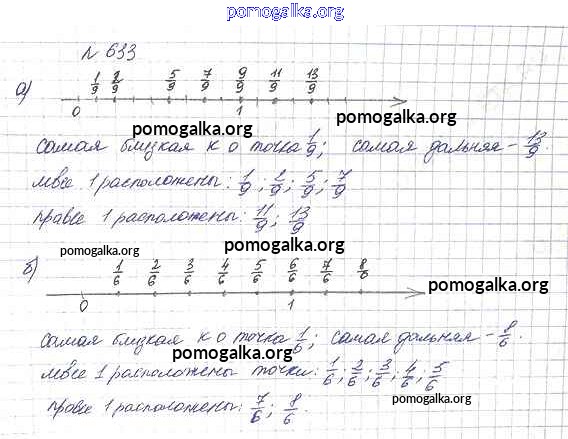 pomogalka.org
N 633
1/9 2/9 5/9 7/9 9/9 11/9 13/9
а)
0 1
pomogalka.org pomogalka.org
самая близкая к 0 точка 1/9; самая дальняя – 13/9.
левее 1 расположены: 1/9; 2/9; 5/9; 7/9
pomogalka.org
правее 1 расположены: 11/9; 13/9
pomogalka.org pomogalka.org
б) 1/6 2/6 3/6 4/6 5/6 6/6 7/6 8/6
pomogalka.org
0 1
самая близкая к 0 точка 1/6; самая дальняя – 8/6.
pomogalka.org
левее 1 расположены точки: 1/6; 2/6; 3/6; 4/6; 5/6
pomogalka.org
правее 1 расположены: 7/6; 8/6.